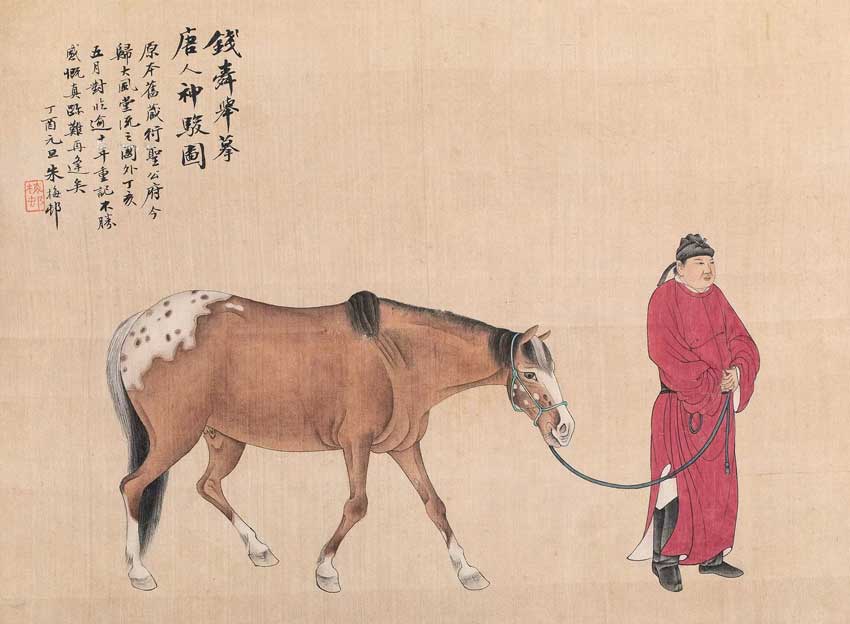 錢舜舉摹
唐人神駿圖
原本舊藏衍聖公府今
歸大風堂流之國外丁亥
五月對临逾十年重記不勝
感慨真跡難再逢矣
丁酉元旦朱梅邨
梅邨